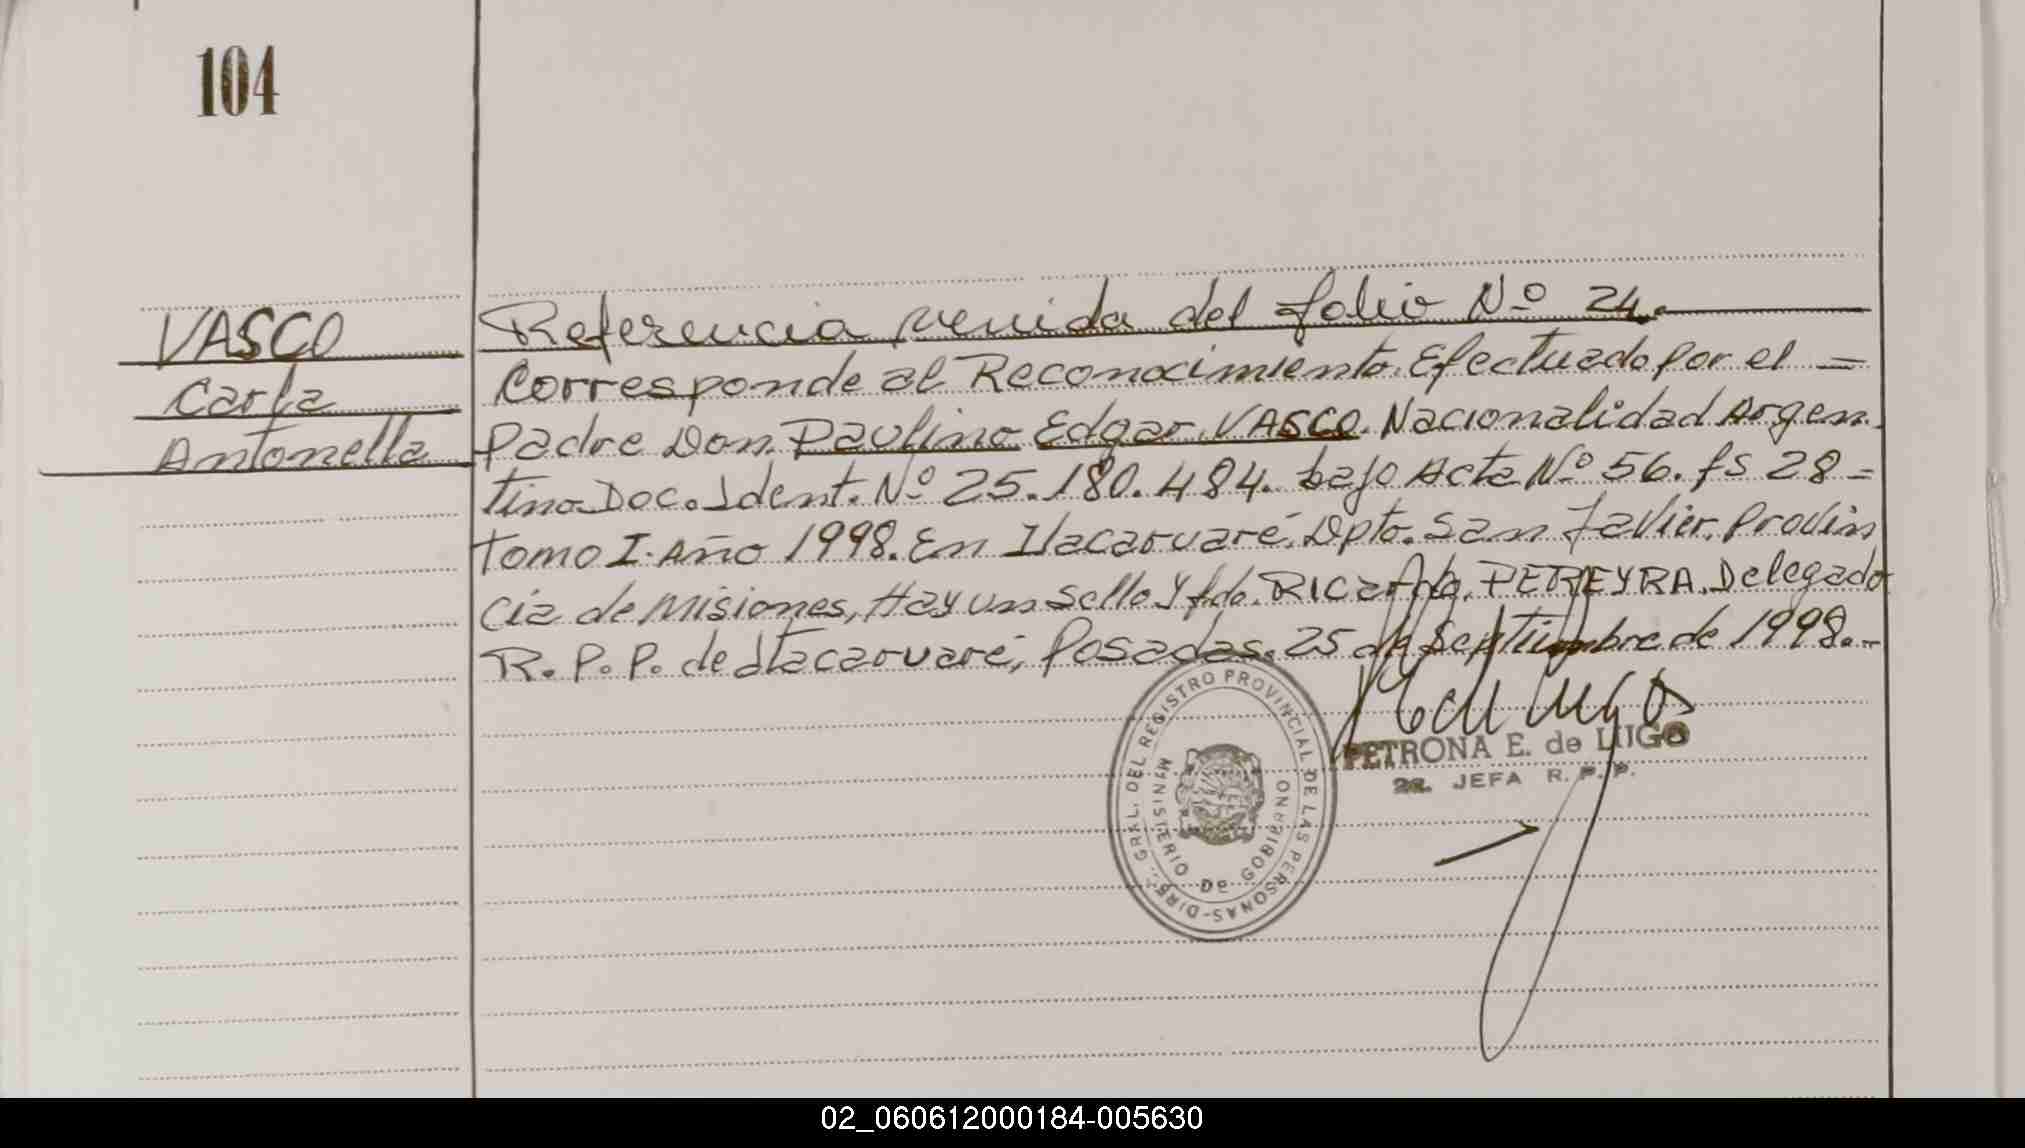 104
VASCO
Carla
Antonella
Referencia venida del folio Nº 24.
Corresponde al Reconocimiento. Efectuado por el =
padre Don. Paulino Edgar. VASCO. Nacionalidad Argen.
tino. Doc. Ident. Nº 25.180.484. bajo Acta Nº 56. fs 28 =
Tomo I. Año 1998. En Itacaruaré. Dpto. San Javier. Provin
cia de Misiones, Hay un sello y fdo. RICARdo. PEREYRA. Delegado
R. P. P. de Itacaruaré, Posadas. 25 de Septiembre de 1998.-
DIREC. GRAL. DEL REGISTRO PROVINCIAL DE LAS PERSONAS-
MINISTERIO DE GOBIERNO
PETRONA E. de LUGO
JEFA R. P. P.
02_060612000184-005630